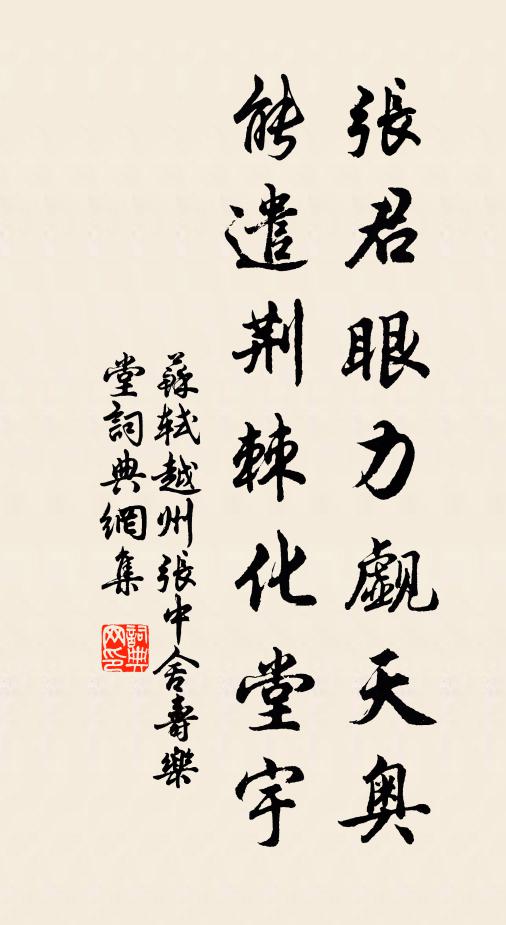 張君眼力覷天奧
能遣荆棘化堂宇
蘇軾越州張中舍壽樂
堂詞典網集
詞典
网印